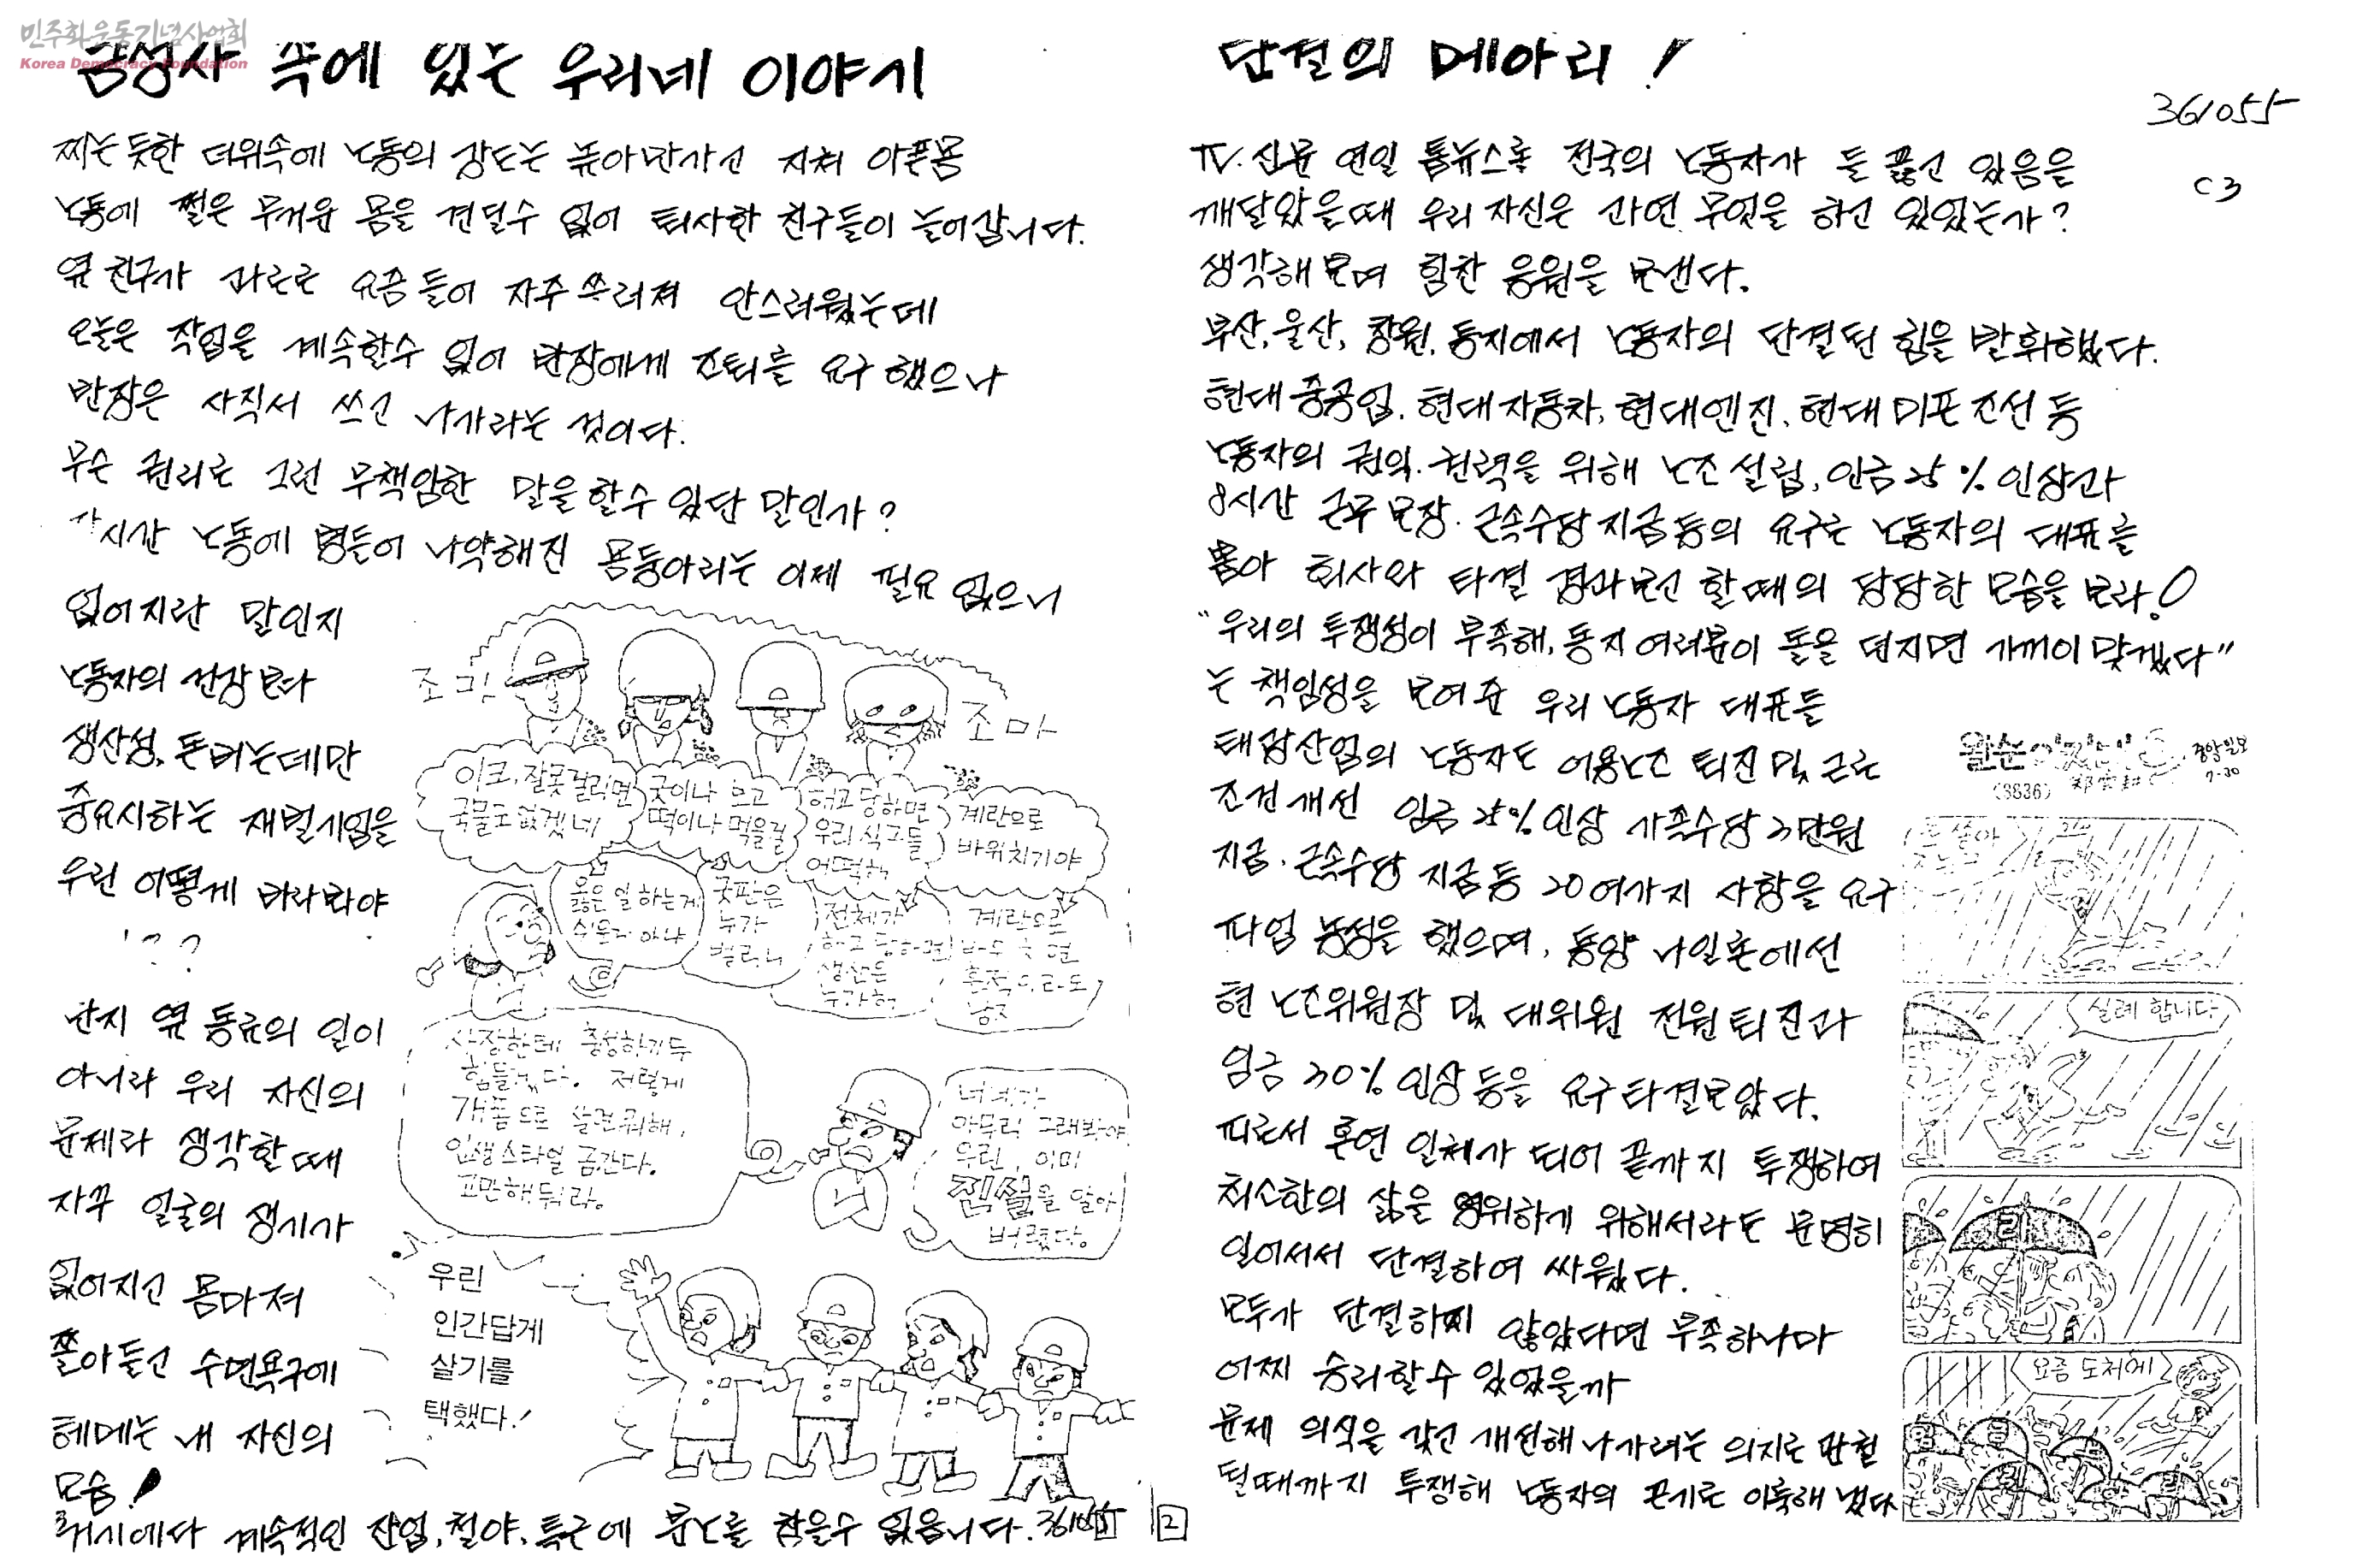 민주화운동기념사업회
Korea Democracy Foundation
금성사 속에 있는 우리네 이야기
찌는 듯한 더위속에 노동의 강도는 높아만가고 지쳐 아픈몸
노동에 쩔은 무거운 몸을 견딜수 없어 퇴사한 친구들이 늘어갑니다.
옆 친구가 과로로 요즘들어 자주 쓰러져 안스러웠는데
오늘은 작업을 계속할수 없어 반장에게 조퇴를 요구했으나
반장은 사직서 쓰고 나가라는 것이다.
무슨 권리로 그런 무책임한 말을할수 있단 말인가?
시간 노동에 병들어 나약해진 몸둥아리는 이제 필요 없으니
없어지란 말인지
노동자의 건강보다
생산성, 돈버는데만
중요시하는 재벌기업을
우린 어떻게 바라봐야
??
단지 옆 동료의 일이
아니라 우리 자신의
문제라 생각할때
자꾸 얼굴의 생기가
없어지고 몸마저
쫄아들고 수면욕구에
헤메는 내 자신의
모습!
거기에다 계속적인 잔업, 철야, 특근에 분노를 참을수 없읍니다.
조마
조마
이크, 잘못걸리면
국물도 없겠네
굿이나 보고
떡이나 먹을걸
해고 당하면
우리 식구들
어떡해
계란으로
바위치기야
옳은 일 하는게
쉬운거 아냐
굿판은
누가
벌리니
전체가
해고 당하면
생산은
누가해
계란으로
흔적이라도
남지
사장한테 충성하기두
힘들겠다. 저렇게
개품으로 살면뭐해,
인생스타일 금간다.
고만해둬라.
너희가
아무리 그래봐야
우린, 이미
진실을 알아
버렸다.
우린
인간답게
살기를
택했다!
2
단결의 메아리!
361055
C3
TV. 신문 연일 톱뉴스로 전국의 노동자가 들 끓고 있음을
깨달았을때 우리 자신은 과연 무엇을 하고 있었는가?
생각해 보며 힘찬 응원을 보낸다.
부산, 울산, 창원, 등지에서 노동자의 단결된 힘을 발휘했다.
현대중공업. 현대자동차, 현대엔진. 현대미포조선 등
노동자의 권익. 권력을 위해 노조 설립, 임금 25% 인상과
8시간 근무 보장. 근속수당 지급등의 요구로 노동자의 대표를
뽑아 회사와 타결 경과보고 할때의 당당한 모습을 보라!
"우리의 투쟁성이 부족해, 동지 여러분이 돌을 던지면 기꺼이 맞겠다"
는 책임성을 보여준 우리 노동자 대표들
태광산업의 노동자도 어용노조 퇴진 및 근로
조건개선 임금 25%인상 가족수당 2만원
지급. 근속수당 지급등 20여가지 사항을 요구
파업 농성을 했으며, 동양 나일론에선
현 노조위원장 및 대위원 전원 퇴진과
임금 20% 인상 등을 요구 타결보았다.
따로서 혼연 일체가 되어 끝까지 투쟁하여
최소한의 삶을 영위하기 위해서라도 분명히
일어서서 단결하여 싸웠다.
모두가 단결하지 않았다면 부족하나마
어찌 승리할수 있었을까
문제 의식을 갖고 개선해 나가려는 의지로 관철
될때까지 투쟁해 노동자의 끈기로 이룩해 냈다
왈순아지매
(3836)
중앙일보
7-30
실례 합니다
요즘 도처에